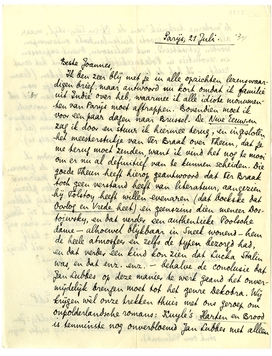 Parijs, 21 Juli.
Beste Joannes,
Ik ben zeer blij met je in alle opzichten lezenswaar-
digen brief, maar antwoord nu kort omdat ik familie
uit Indië over heb, waarmee ik alle idiote monumen-
ten van Parijs moet aftrappen. Bovendien moet ik
voor een paar dagen naar Brussel. De Vrije Eeuwen
zag ik door en stuur ik hiermee terug, en ingesloten
het meesterstukje van ter Braak over Theun, dat je
me terug moet zenden, want ik vind het nog te mooi
om er nu al definitief van te kunnen scheiden. Die
goede Theun heeft hierop geantwoord dat Ter Braak
toch zeer verstand heeft van literatuur, aangezien
hij Tolstoy heeft willen evenaren (dat Boekske dat
Oorlog en Vrede heet) en geenszins dien meneer Dos-
tojewsky, en dat verder een authentieke Poolsche
dame – alhoewel blijkbaar in Sneek wonend – hem
de heele atmosfeer en zelfs de typen bezorgd had,
en dat verder een kind kon zien dat Kucha Stalin
was en dat enz. enz. – behalve de conclusie dat
Jan Lubbes op deze manier te werk gaand het onver-
wijld brengen moet tot het genre Dekobra. Wij
krijgen wel onze trekken thuis met ons geroep om
onpolderlandsche romans: Kuyle's Harten en Brood
is tenminste nog onverbloemd Jan Lubbes met allen